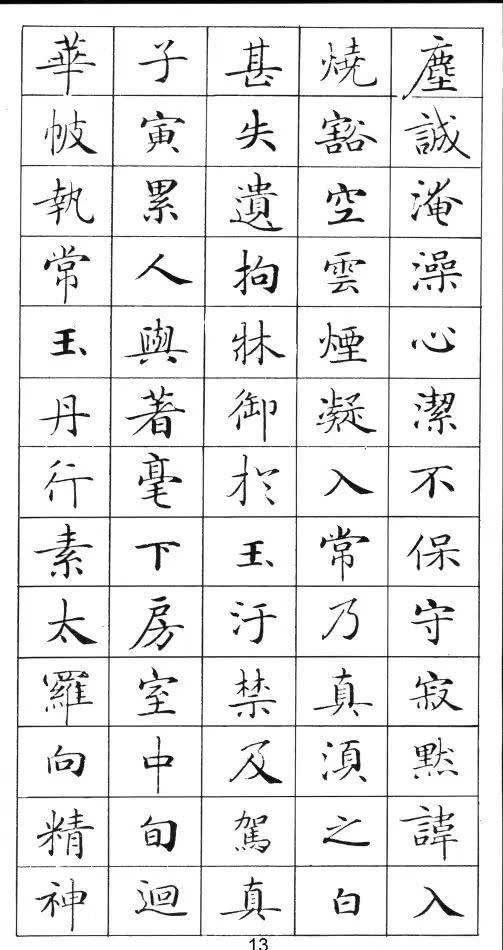 塵誠淹澡心潔不保守寂黙諱入
燒豁空雲煙凝入常乃真湏之白
甚失遺拘牀御扵玉汙禁及駕真
子寅累人輿著毫下房室中旬迴
華帔執常玉丹行素太羅向精神
13